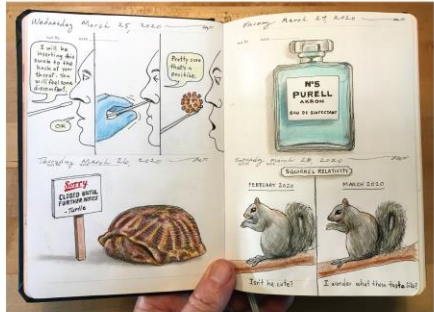 Wednesday March 25, 2020
I will be
inserting this
swab to the
back of your
throat. You
will feel some
discomfort.
OK
Pretty sure
that's a
positive.
Thursday March 26, 2020
Sorry
CLOSED UNTIL
FURTHER NOTICE
-Turtle
Friday March 27, 2020
Nº5
PURELL
AKRON
EAU DE DISINFECTANT
Saturday March 28, 2020
SQUIRREL RELATIVITY
FEBRUARY 2020
MARCH 2020
Isn't he cute?
I wonder what those taste like?